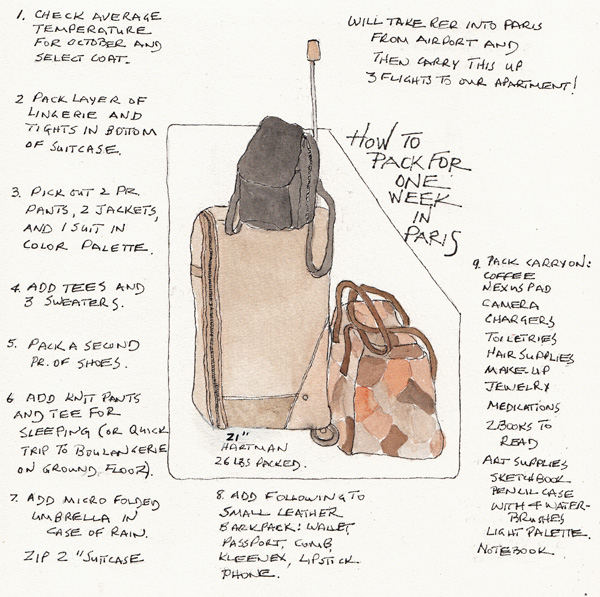 1. CHECK AVERAGE
TEMPERATURE
FOR OCTOBER AND
SELECT COAT.
2 PACK LAYER OF
LINGERIE AND
TIGHTS IN BOTTOM
OF SUITCASE.
3. PICK OUT 2 PR
PANTS, 2 JACKETS,
AND 1 SUIT IN
COLOR PALETTE.
4. ADD TEES AND
3 SWEATERS.
5. PACK A SECOND
PR. OF SHOES.
6 ADD KNIT PANTS
AND TEE FOR
SLEEPING (OR QUICK
TRIP TO BOULANGERIE
ON GROUND FLOOR).
7. ADD MICRO FOLDED
UMBRELLA IN
CASE OF RAIN.
ZIP 2 "SUITCASE
WILL TAKE RER INTO PARIS
FROM AIRPORT AND
THEN CARRY THIS UP
3 FLIGHTS TO OUR APARTMENT!
HOW TO
PACK FOR
ONE
WEEK
IN
PARIS
21"
HARTMAN
26 LBS PACKED.
8. ADD FOLLOWING TO
SMALL LEATHER
BACKPACK: WALLET,
PASSPORT, COMB,
KLEENEX, LIPSTICK
PHONE.
9. PACK CARRYON:
COFFEE
NEXUS PAD
CAMERA
CHARGERS
TOILETRIES
HAIR SUPPLIES
MAKE-UP
JEWELRY
MEDICATIONS
2 BOOKS TO
READ
ART SUPPLIES
SKETCHBOOK
PENCIL CASE
WITH 4 WATER-
BRUSHES
LIGHT PALETTE.
NOTEBOOK.